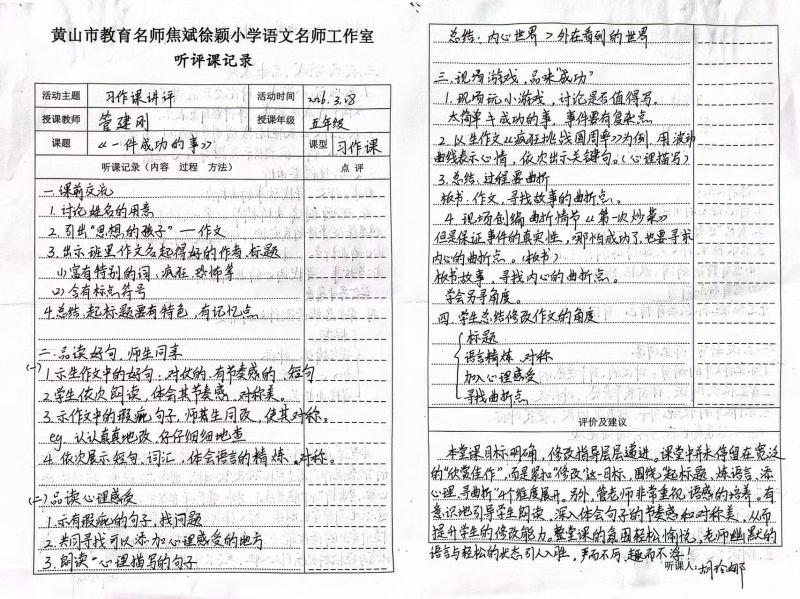 黄山市教育名师焦斌徐颖小学语文名师工作室
听评课记录
活动主题 习作课讲评 活动时间 2026.3.18
授课教师 管建刚 授课年级 五年级
课题 《一件成功的事》 课型 习作课
听课记录(内容 过程 方法) 点 评
一.课前交流
1.讨论姓名的用意
2.引出“思想的孩子”—作文
3.出示班里作文名起得好的作者、标题
(1)富有特别的词,疯狂 恐怖等
(2)含有标点符号
4.总结,起标题要有特色,有记忆点
二.品读好句,师生同享
(一)
1.示生作文中的好句:对仗的,有节奏感的,短句
2.学生依次朗读,体会其节奏感,对称美。
3.示作文中的瑕疵句子,师若生同改,使其对称。
eg.认认真真地改,仔仔细细地查
4.依次展示短句,词汇,体会语言的精炼。对称。
(二)品读心理感受
1.示有瑕疵的句子,找问题
2.共同寻找可以添加心理感受的地方
3.朗读“心理描写的句子
总结:内心世界>外在看到的世界
三.现场游戏,品味“成功”
1.现场玩小游戏,讨论是否值得写。
太简单≠成功的事,事件要有复杂点
2.以生作文《疯狂挑战圆周率》为例,用波动
曲线表示心情,依次出示关键句。(心理描写)
3.总结:过程要曲折
板书:作文,寻找故事的曲折点。
4.现场创编曲折情节《第一次炒菜》
但是保证事件的真实性,哪怕成功了,也要寻求
内心的曲折点。(板书)
板书故事,寻找内心的曲折点。
学会另寻角度。
四.学生总结修改作文的角度
标题
语言精炼、对称
加入心理感受
寻找曲折点
评价及建议
本堂课目标明确,修改指导层层递进。课堂中并未停留在宽泛
的“欣赏佳作”,而是紧扣“修改”这一目标,围绕“起标题、炼语言、添
心理、寻曲折”4个维度展开。另外,管老师非常重视语感的培养,有
意识地引导学生朗读,深入体会句子的节奏感和对称美,从而
提升学生的修改能力。整堂课的氛围轻松愉悦,老师幽默的
语言与轻松的状态引人入胜,严而不厉,趣而不浮!
听课人:胡玲娜